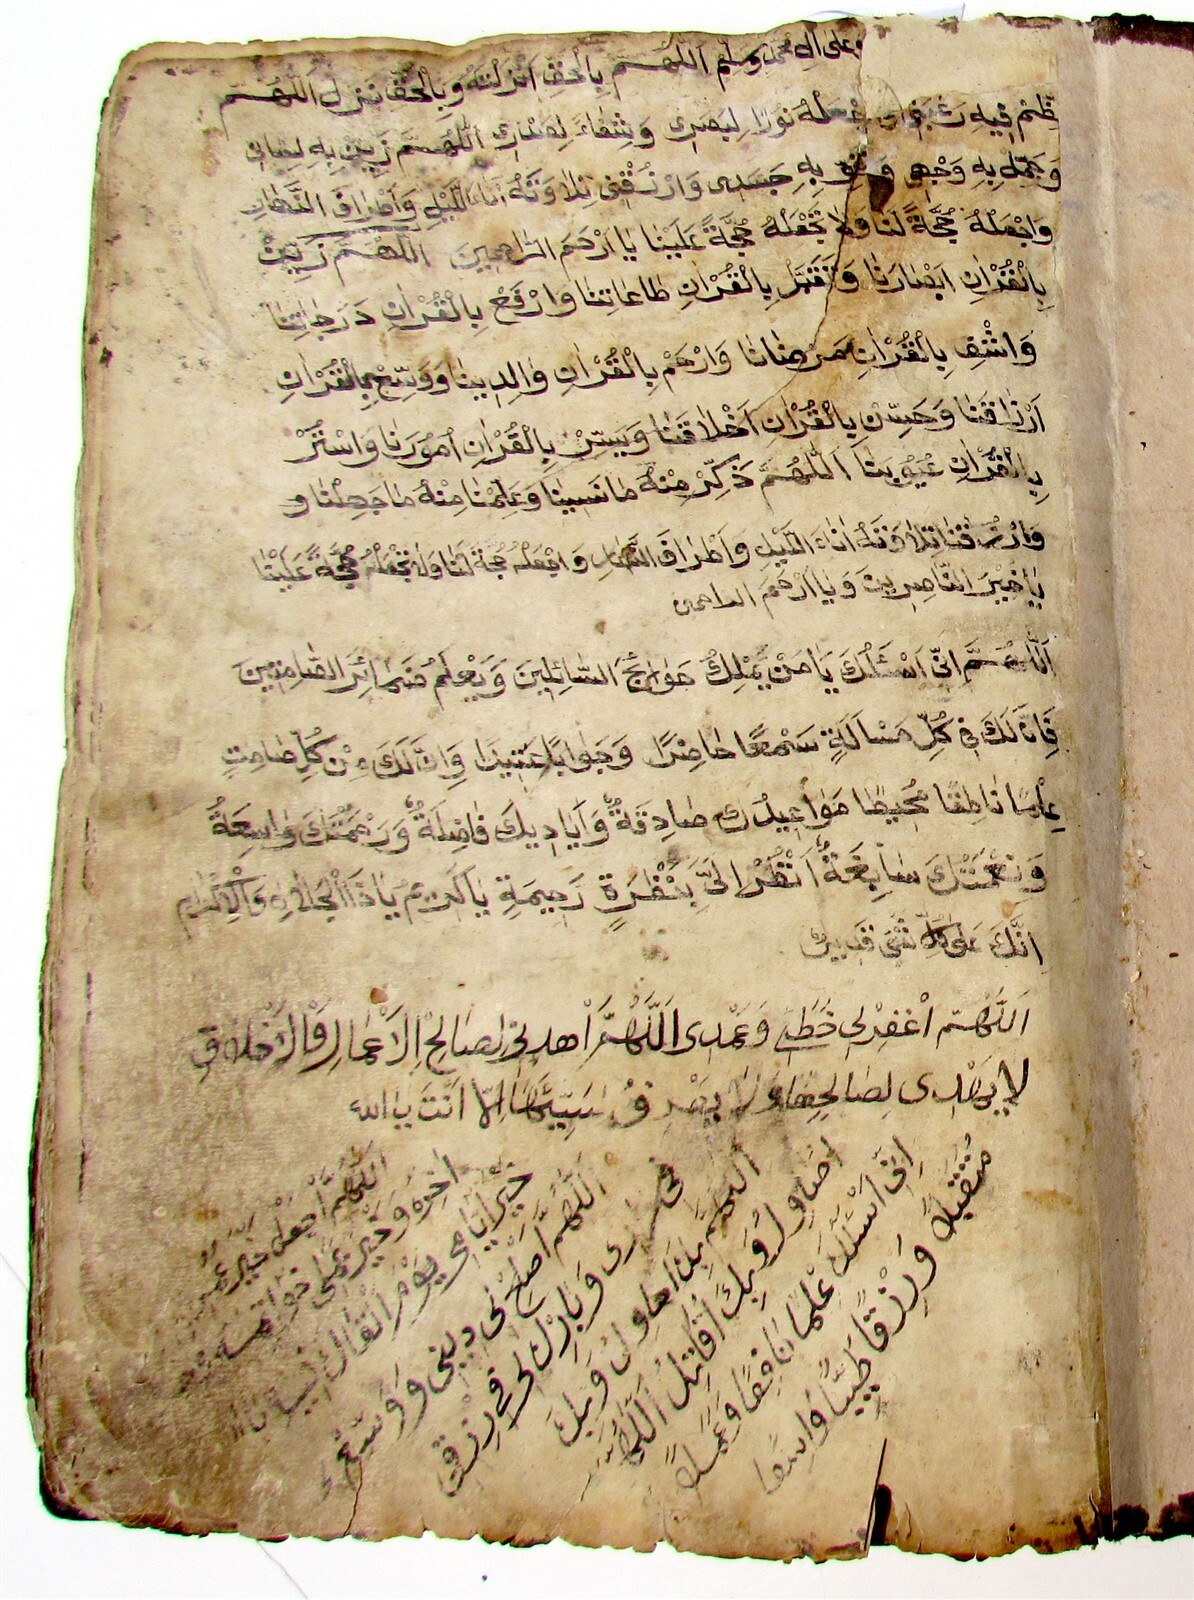 وعلى اله محمد وسلم اللهم بالحق انزلته وبالحق نزل اللهم
عظم فيه رغبتي واجعله نورا لبصرى وشفاء لصدرى اللهم زين به لسانى
وجمل به وجهى وقو به جسدى وارزقنى تلاوته اناء الليل واطراف النهار
واجعله حجة لنا ولا تجعله حجة علينا يا ارحم الراحمين اللهم زين
بالقران ابصارنا وتقبل بالقران طاعاتنا وارفع بالقران درجاتنا
واشف بالقران مرضانا وارحم بالقران والدينا ووسع بالقران
ارزاقنا وحسن بالقران اخلاقنا ويسر بالقران امورنا واستر
بالقران عيوبنا اللهم ذكر منه ما نسينا وعلمنا منه ما جهلنا و
وارزقنا تلاوته اناء الليل واطراف النهار واجعله حجة لنا ولا تجعله حجة علينا
يا خير الناصرين ويا ارحم الراحمين
اللهم انى اسئلك يا من يملك حوائج السائلين ويعلم ضمائر الصامتين
فان لك فى كل مسالة سمعا حاضرا وجوابا عتيدا وان لك من كل صامت
علما ناطقا محيطا مواعيدك صادقة واياديك فاضلة ورحمتك واسعة
ونعمتك سابغة انظر الى بنظرة رحيمة يا كريم يا ذا الجلال والاكرام
انك على كل شئ قدير
اللهم اغفرلى خطئى وعمدى اللهم اهدنى لصالح الاعمال والاخلاق
لا يهدى لصالحها ولا يصرف سيئها الا انت يا الله
اللهم اجعل خير عمرى
اخره وخير عملى خواتمه
خير ايامى يوم القاك
اللهم اصلح لى دينى ووسع
فى دارى وبارك لى فى رزقى
اللهم بك احاول وبك
اصاول وبك اقاتل اللهم
انى اسئلك علما نافعا وعملا
متقبلا ورزقا طيبا واسعا